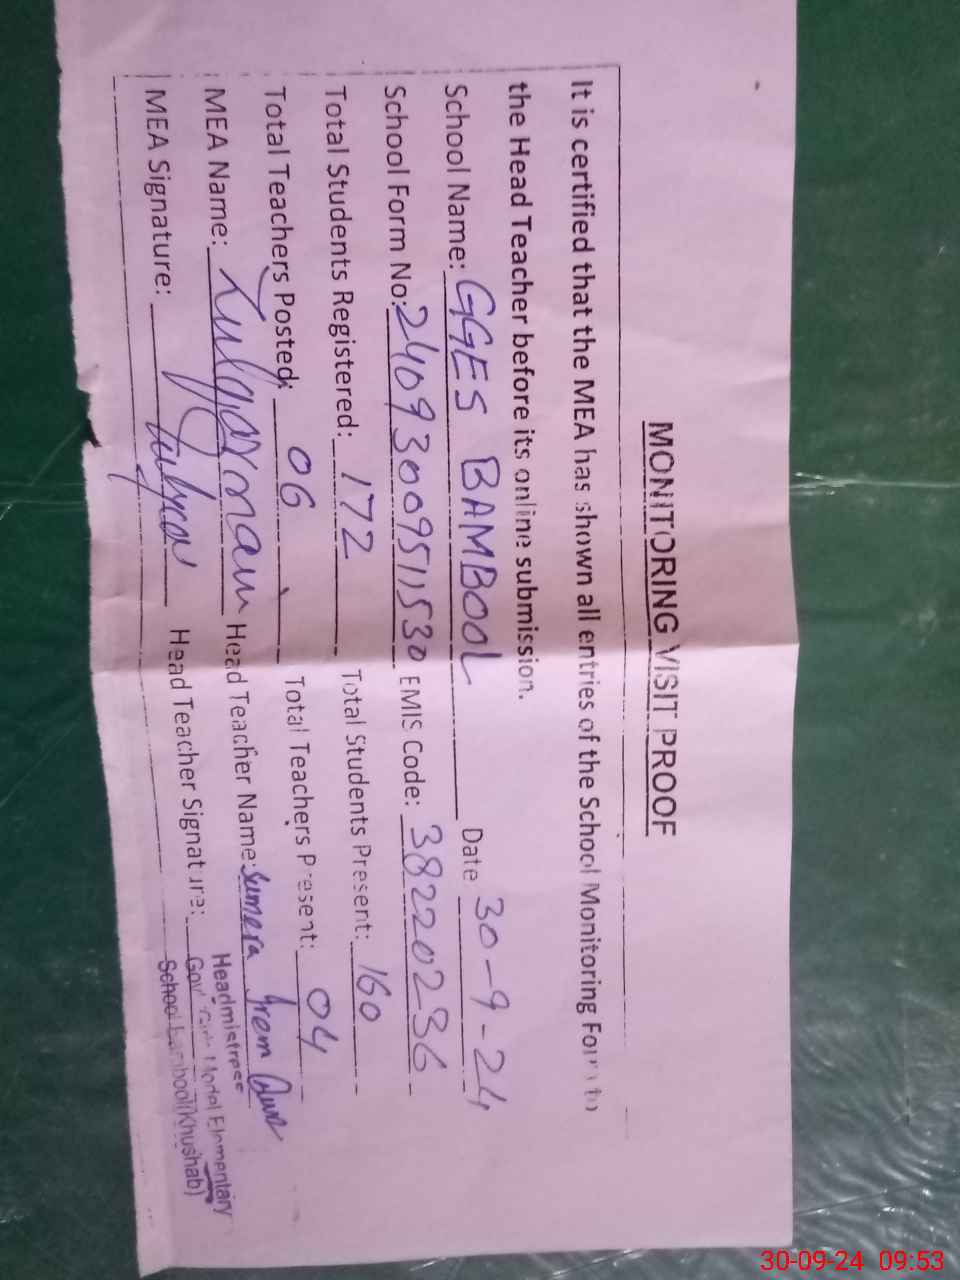 MONITORING VISIT PROOF
It is certified that the MEA has shown all entries of the School Monitoring Form to
the Head Teacher before its online submission.
School Name: GGES BAMBOOL Date 30-9-24
School Form No: 2409300951530 EMIS Code: 38220236
Total Students Registered: 172 Total Students Present: 160
Total Teachers Posted: 06 Total Teachers Present: 04
MEA Name: Zulqarnain Head Teacher Name: Sumera
MEA Signature: Head Teacher Signature:
Headmistress
Govt Girls Model Elementary
School Bambool (Khushab)
30-09-24 09:53